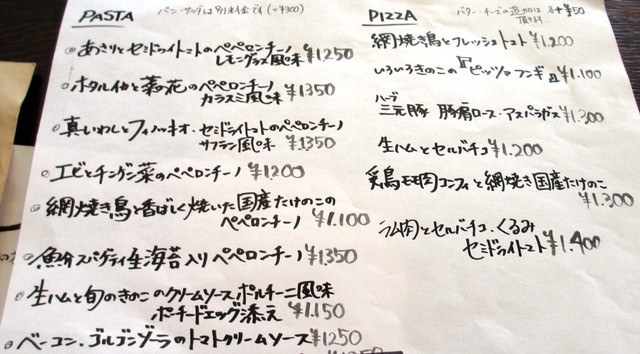 PASTA
パン・サラダは別料金です (+¥300)
あさりとセミドライトマトのペペロンチーノ
レモングラス風味 ¥1,250
ホタルイカと菜の花のペペロンチーノ
カラスミ風味 ¥1350
真いわしとフィノッキオ・セミドライトマトのペペロンチーノ
サフラン風味 ¥1350
エビとチンゲン菜のペペロンチーノ ¥1200
網焼き鳥と香ばしく焼いた国産たけのこの
ペペロンチーノ ¥1.100
魚介スパゲティ生海苔入りペペロンチーノ ¥1350
生ハムと旬のきのこのクリームソース ポルチーニ風味
ポーチドエッグ添え ¥1.150
ベーコン、ゴルゴンゾーラのトマトクリームソース ¥1250
PIZZA
バター・チーズの追加は 各+¥50
頂きます
網焼き鳥とフレッシュトマト ¥1.200
いろいろきのこの『ピッツァ フンギ』 ¥1.100
ハーブ
三元豚 豚肩ロース・アスパラガス ¥1.300
生ハムとセルバチコ ¥1.200
鶏モモ肉コンフィと網焼き国産たけのこ
¥1.300
ラム肉とセルバチコ、くるみ
セミドライトマト ¥1.400